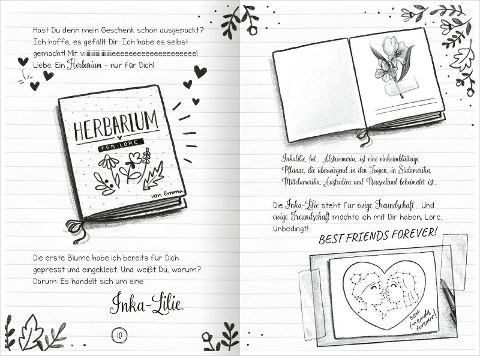 Hast Du denn mein Geschenk schon ausgepackt?
Ich hoffe, es gefällt Dir. Ich habe es selbst
gemacht! Mit
Liebe. Ein Herbarium – nur für Dich!
HERBARIUM
FÜR LORE
von Emma
Die erste Blume habe ich bereits für Dich
gepresst und eingeklebt. Und weißt Du, warum?
Darum: Es handelt sich um eine
Inka-Lilie.
10
Inkalilie, bot. Alstroemeria, ist eine einkeimblättrige
Pflanze, die überwiegend in den Tropen, in Südamerika,
Mittelamerika, Australien und Neuseeland beheimatet ist.
Die Inka-Lilie steht für ewige Freundschaft. Und
ewige Freundschaft möchte ich mit Dir haben, Lore.
Unbedingt!
BEST FRIENDS FOREVER!